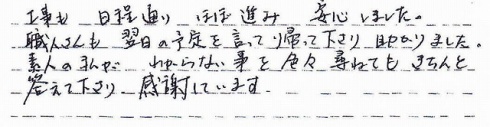 工事も 日程通り ほぼ進み 安心しました。
職人さんも 翌日の予定を言って帰って下さり 助かりました。
素人の私が わからない事を色々尋ねても きちんと
答えて下さり 感謝しています。